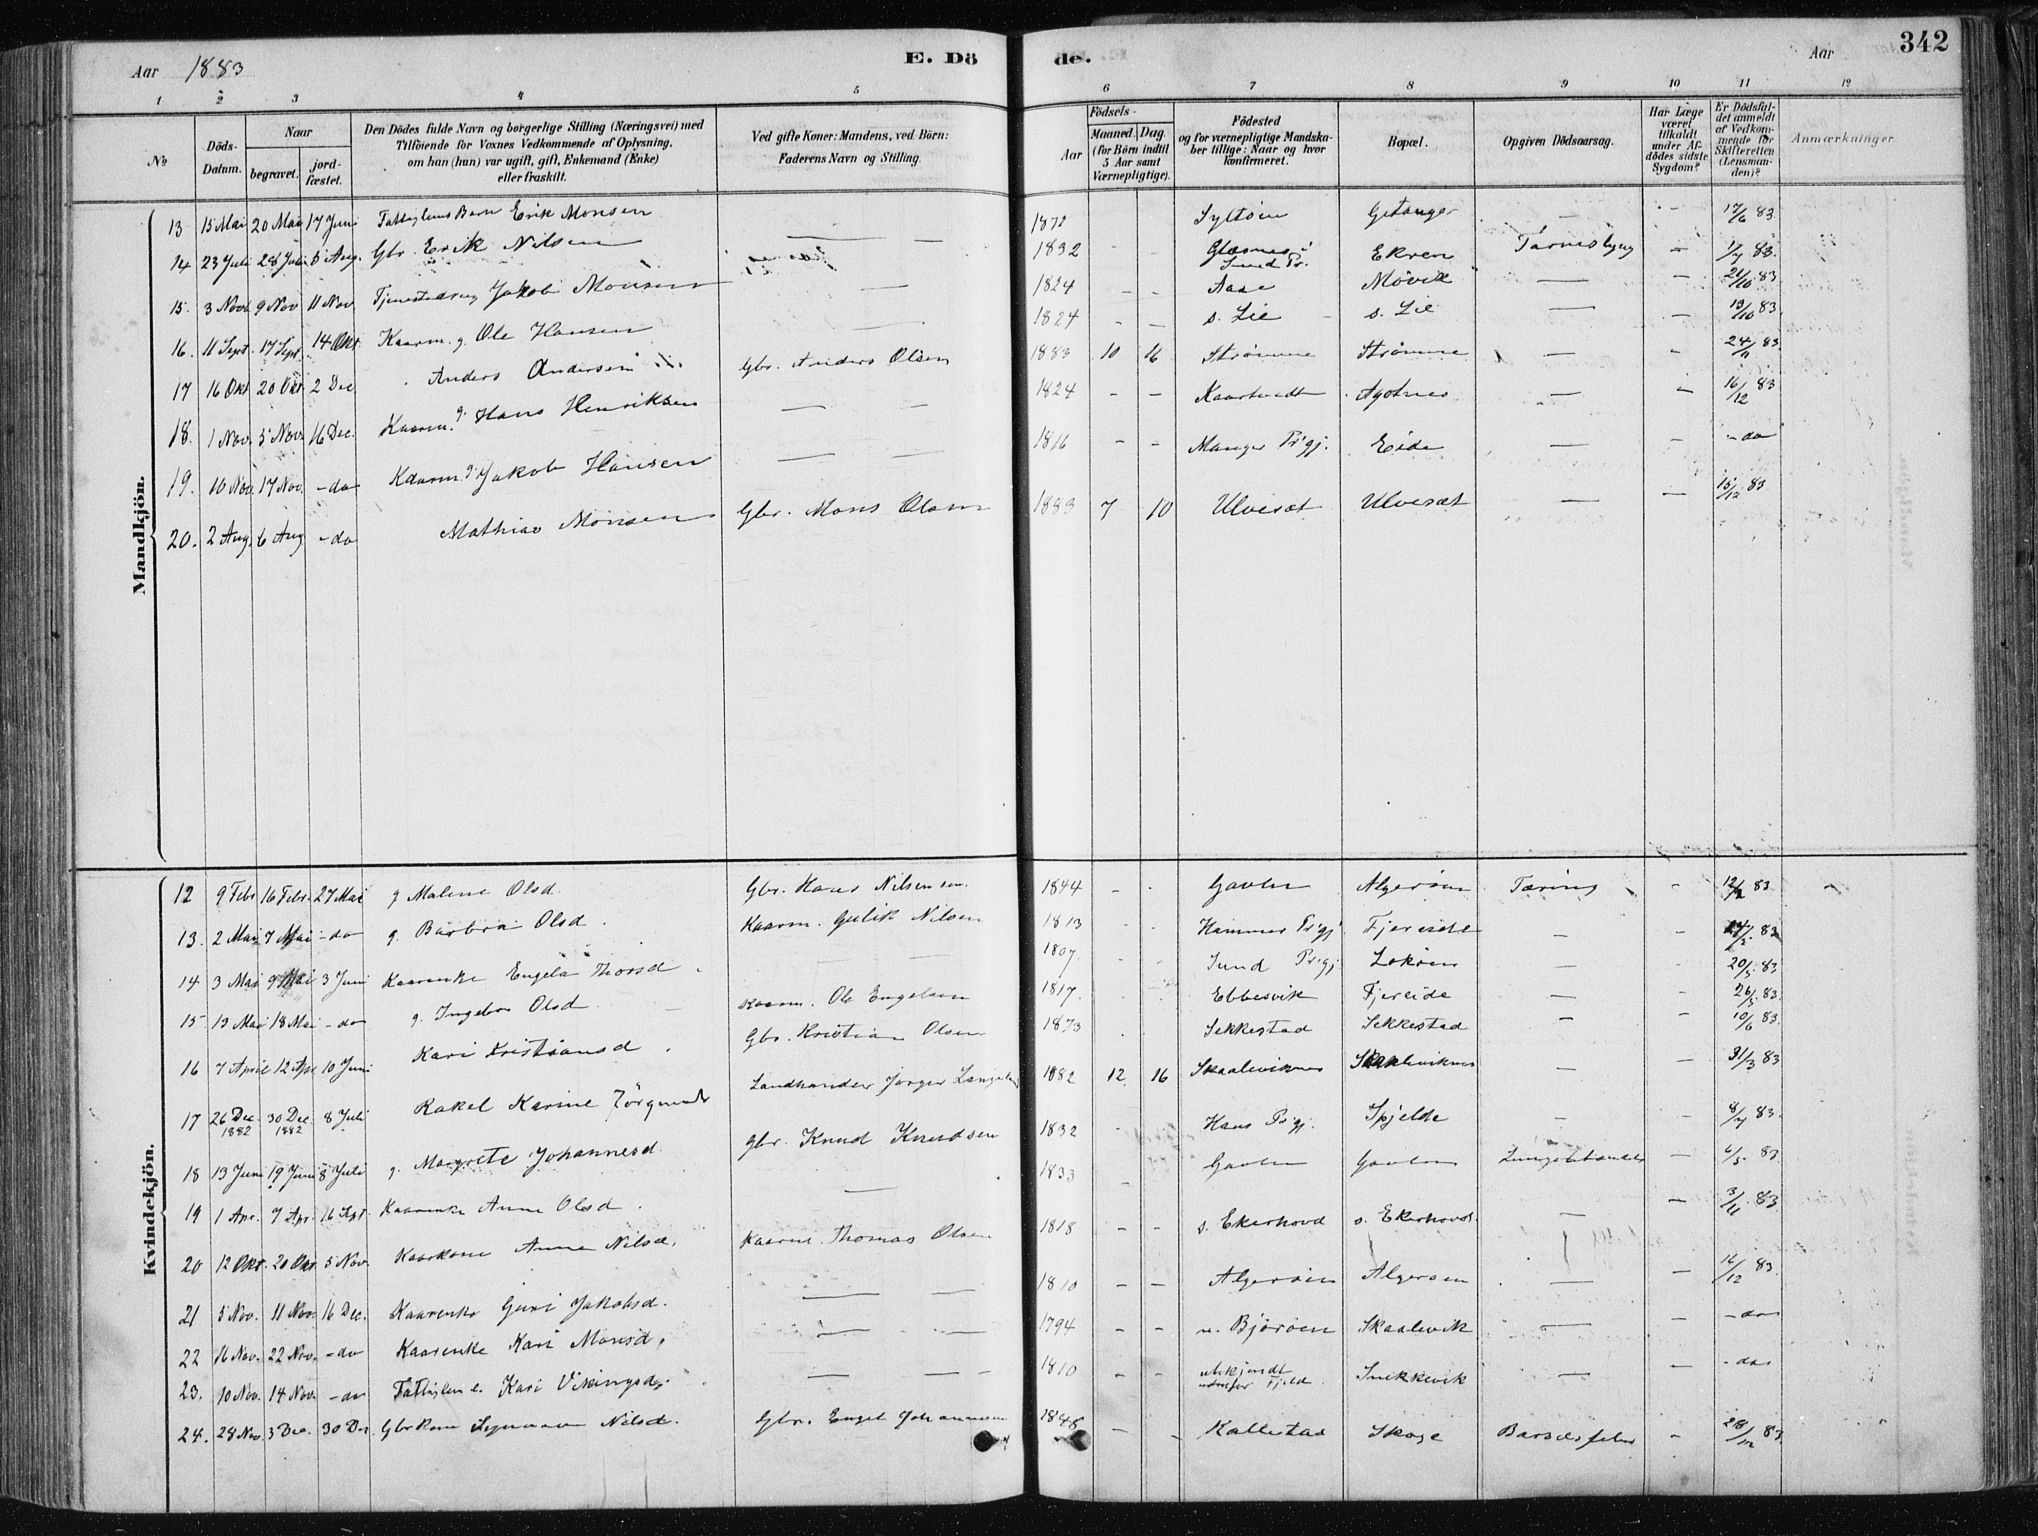 Aar 1883 E. Dö de. Aar 342
1 2 3 4 5 6 7 8 9 10 11 12
No Döds-Datum. Naar begravet. jord-fæstet. Den Dödes fulde Navn og borgerlige Stilling (Næringsvei) med Tilföiende for Voxnes Vedkommende af Oplysning, om han (hun) var ugift, gift, Enkemand (Enke) eller fraskilt. Ved gifte Koner: Mandens, ved Börn: Faderens Navn og Stilling. Födsels- Aar Maaned. Dag. (for Börn indtil 5 Aar samt Værnepligtige). Födested og for værnepligtige Mandskaber tillige: Naar og hvor konfirmeret. Bopæl. Opgiven Dödsaarsag. Har Læge været tilkaldt under Afdödes sidste Sygdom? Er Dödsfaldet anmeldt af Vedkommende for Skifteretten (Lensmanden)? Anmærkninger
Mandkjön.
13 15 Mai 20 Mai 17 Juni Barn Erik Monsen — — 1872 Syltöen — — 17/6 83.
14 23 Juli 28 Juli 5 Aug. Gbr. Erik Nilsen 1832 - Sund Pr. Ekren — 1/7 83.
15. 3 Novb 9 Nov 11 Nov. Jakob Monsen — 1824 - - Aase Møvik — — 21/10 83
16. 11 Sept. 17 Sept. 14 Okt. Kaarm. g. Ole Hansen — 1824 - - s. Lie s. Lie — — 13/10 83.
17 16 Okt 20 Okt 2 Dec Anders Andersen Gbr. Anders Olsen 1883 10 16 Strømme Strømme — — 24/11 83.
18. 1 Nov. 5 Nov. 16 Dec. Kaarm. g. Hans Henriksen — — 1824 - - Kaartvedt Agotnes — — 16/12 83
19. 10 Nov. 17 Nov. - do Kaarm. g. Jakob Hansen — — 1816 - - Manger Prgj. Eide — — - do
20. 2 Aug. 6 Aug - do Mathias Monsen Gbr. Mons Olsen 1883 7 10 Ulvesæt Ulvesæt — — 15/12 83
Kvindekjön.
12 9 Febr 16 Febr. 27 Mai g Malene Olsd. Gbr. Hans Nilsen sen. 1844 - - Gavlen Algerøen Tæring - 12/2 83 -
13. 2 Mai 7 Mai - do g. Barbra Olsd. Kaarm. Gulik Nilsen 1813 - Hammer Prgj. Fjereide — — 83
14 3 Mai 9 Mai 3 Juni Kaarenke Engela Thorsd — — 1807. Sund Prgj. Lokøen — - 20/5 83
15 13 Mai 18 Mai - do g. Ingebor Olsd Kaarm. Ole Engelsen 1817. Ebbesvik Fjereide — - 26/5 83.
16 7 April 12 Apr 10 Juni Kari Kristiansd Gbr. Kristian Olsen 1873 Sekkestad Sekkestad — - 10/6 83.
17 26 Dec 1882 30 Dec 1882 8 Juli Rakel Karine Landhandler 1882 12 16 Skaaleviknes Skaaleviknes — — 31/3 83
18 13 Juni 19 Juni 8 Juli g. Margrete Johannesd. gbr. Knud Knudsen 1832 Haus Prgj. Spjelde — — 8/7 83.
19 1 Apr. 7 Apr. 16 Sept Kaarenke Anne Olsd. — 1833 - Gavlen Gavlen — 6/5 83
20 12 Okt. 20 Okt. 5 Nov. Kaarkone Anna Nilsd. Kaarm. Thomas Olsen 1818 - - s. Ekerhovd s. Ekerhovd. — - 3/11 83
21 5 Nov. 11 Nov. 16 Dec. Kaarenke Guri Jakobsd. — — 1810 - - Algerøen Algerøen — — 16/12 83.
22 16 Nov. 22 Nov. - do Kaarenke Kari Monsd. — — 1794 - - n. Bjørøen Skaalevik — — - do
23. 10 Nov. 14 Nov. - do Kari Vikingsd. — — 1810 - - ubekjendt udenfor Fjeld. Snekkevik — — - do
24. 28 Nov. 3 Dec. 30 Dec Gbrkone Nilsd. Gbr. Engel Johannesen 1848 - - Kallestad Skoge Barselsfeber - 28/12 83.